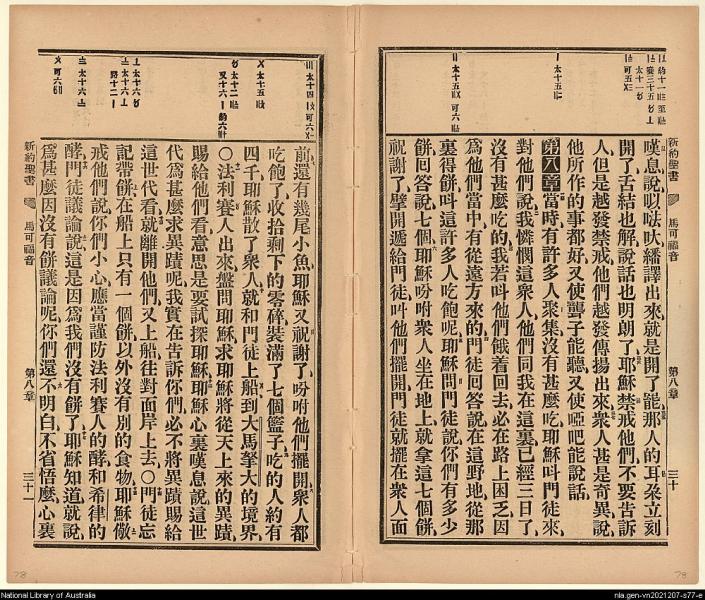 新約聖書
馬可福音
第八章
三十
嘆息說㕷㕭㕷繙譯出來就是開了罷那人的耳朶立刻
開了舌結也解說話也明朗了耶穌禁戒他們不要告訴
人但是越發禁戒他們越發傳揚出來衆人甚是奇異說
他所作的事都好又使聾子能聽又使啞吧能說話
第八章當時有許多人聚集沒有甚麼吃耶穌叫門徒來
對他們說我憐憫這衆人他們同我在這裏已經三日了
沒有甚麼吃的我若叫他們餓着回去必在路上困乏因
爲他們當中有從遠方來的門徒回答說在這野地從那
裏得餅叫這許多人吃飽呢耶穌問門徒說你們有多少
餅回答說七個耶穌吩咐衆人坐在地上就拿這七個餅
祝謝了擘開遞給門徒叫他們擺開門徒就擺在衆人面
前還有幾尾小魚耶穌又祝謝了吩咐他們擺開衆人都
吃飽了收拾剩下的零碎裝滿了七個籃子吃的人約有
四千耶穌散了衆人就和門徒上船到大馬拏大的境界
○法利賽人出來盤問耶穌求耶穌將從天上來的異蹟
賜給他們看意思是要試探耶穌耶穌心裏嘆息說這世
代爲甚麼求異蹟呢我實在告訴你們必不將異蹟賜給
這世代看就離開他們又上船往對面岸上去○門徒忘
記帶餅在船上只有一個餅以外沒有別的食物耶穌儆
戒他們說你們小心應當謹防法利賽人的酵和希律的
酵門徒議論說這是因爲我們沒有餅了耶穌知道就說
爲甚麼因沒有餅議論呢你們還不明白不省悟麼心裏
新約聖書
馬可福音
第八章
三十一
78
78
National Library of Australia
nla.gen-vn2021207-s77-e